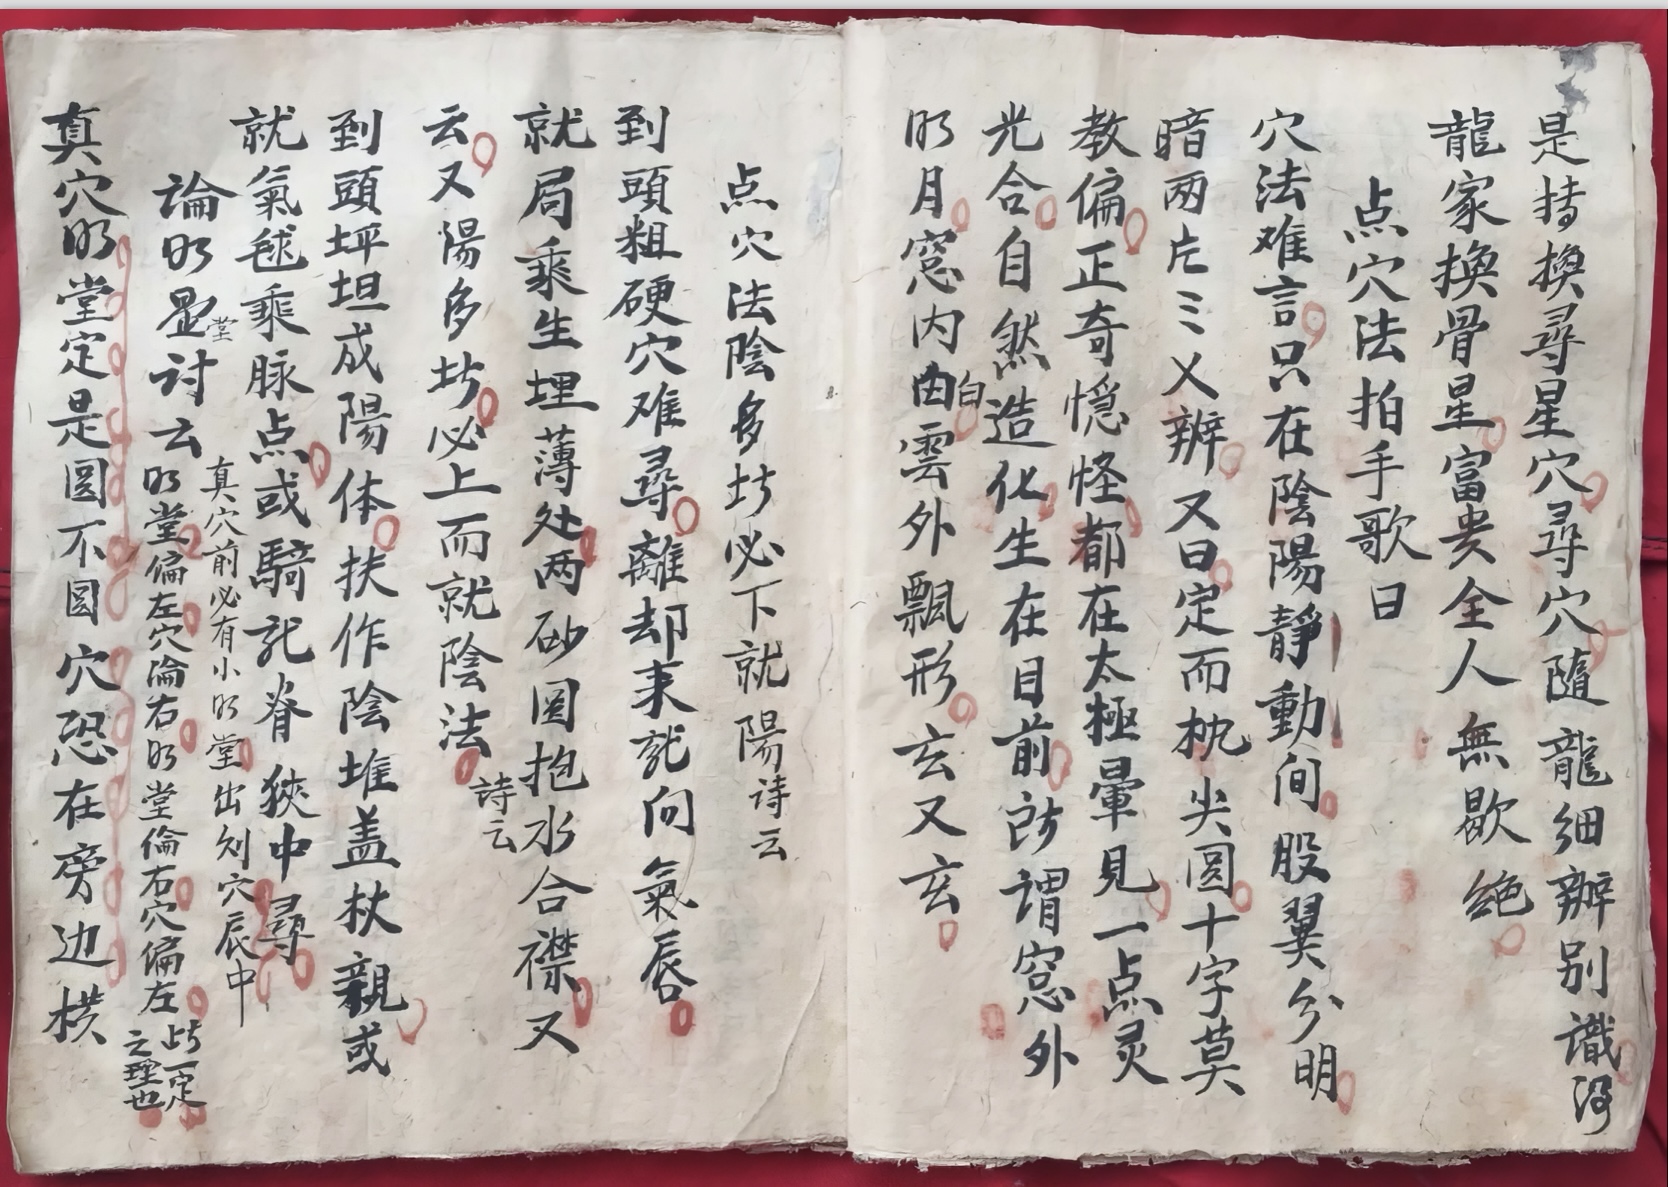 是持換尋星穴尋穴隨龍細辦别識得
龍家換骨星富贵全人無歇絶
点穴法拍手歌曰
穴法难言只在陰陽靜動间股翼分明
暗两片三乂辦又曰定而枕尖圆十字莫
教偏正奇憶怪都在太極暈見一点灵
光合自然造化生在目前所謂窓外
明月窓内白雲外飄形玄又玄
点穴法陰多坟必下就陽詩云
到頭粗硬穴难尋離却来就向氣唇
就局乘生埋薄处两砂圆抱水合襟又
云又陽多坟必上而就陰法詩云
到頭坪坦成陽体扶作陰堆盖杖親或
就氣毬乘脉点或騎龍脊狹中尋
真穴前必有小明堂出刘穴辰中
論明堂討云明堂偏左穴淪右明堂倫右穴偏左此一定之理也
真穴明堂定是圆不圆穴恐在旁边横